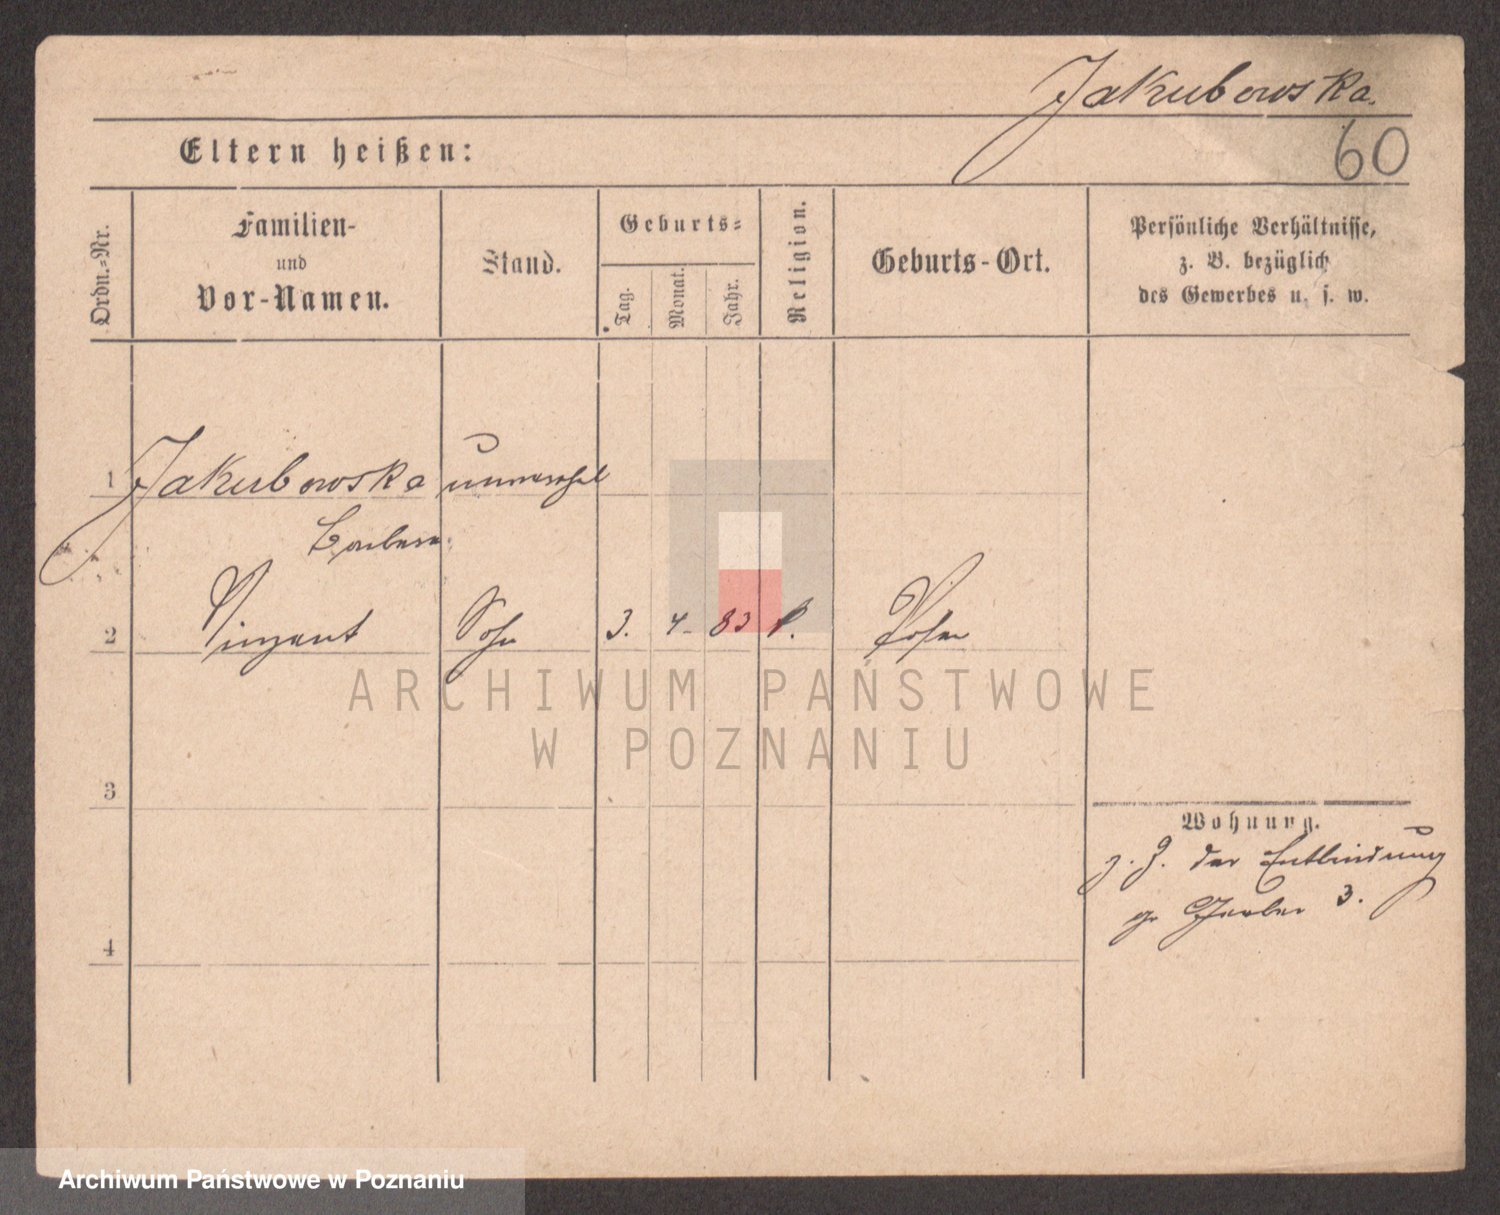 Jakubowska.
60
Eltern heißen:
Ordn.-Nr.
Familien-
und
Vor-Namen.
Stand.
Geburts-
Tag.
Monat.
Jahr.
Religion.
Geburts-Ort.
Persönliche Verhältnisse,
z. B. bezüglich
des Gewerbes u. s. w.
1 Jakubowska unverehel
2 Vinzent Sohn 3. 4. 83 Posen
3
4
Wohnung.
z. Z. der Entbindung
gr Gerber 3.
ARCHIWUM PAŃSTWOWE
W POZNANIU
Archiwum Państwowe w Poznaniu